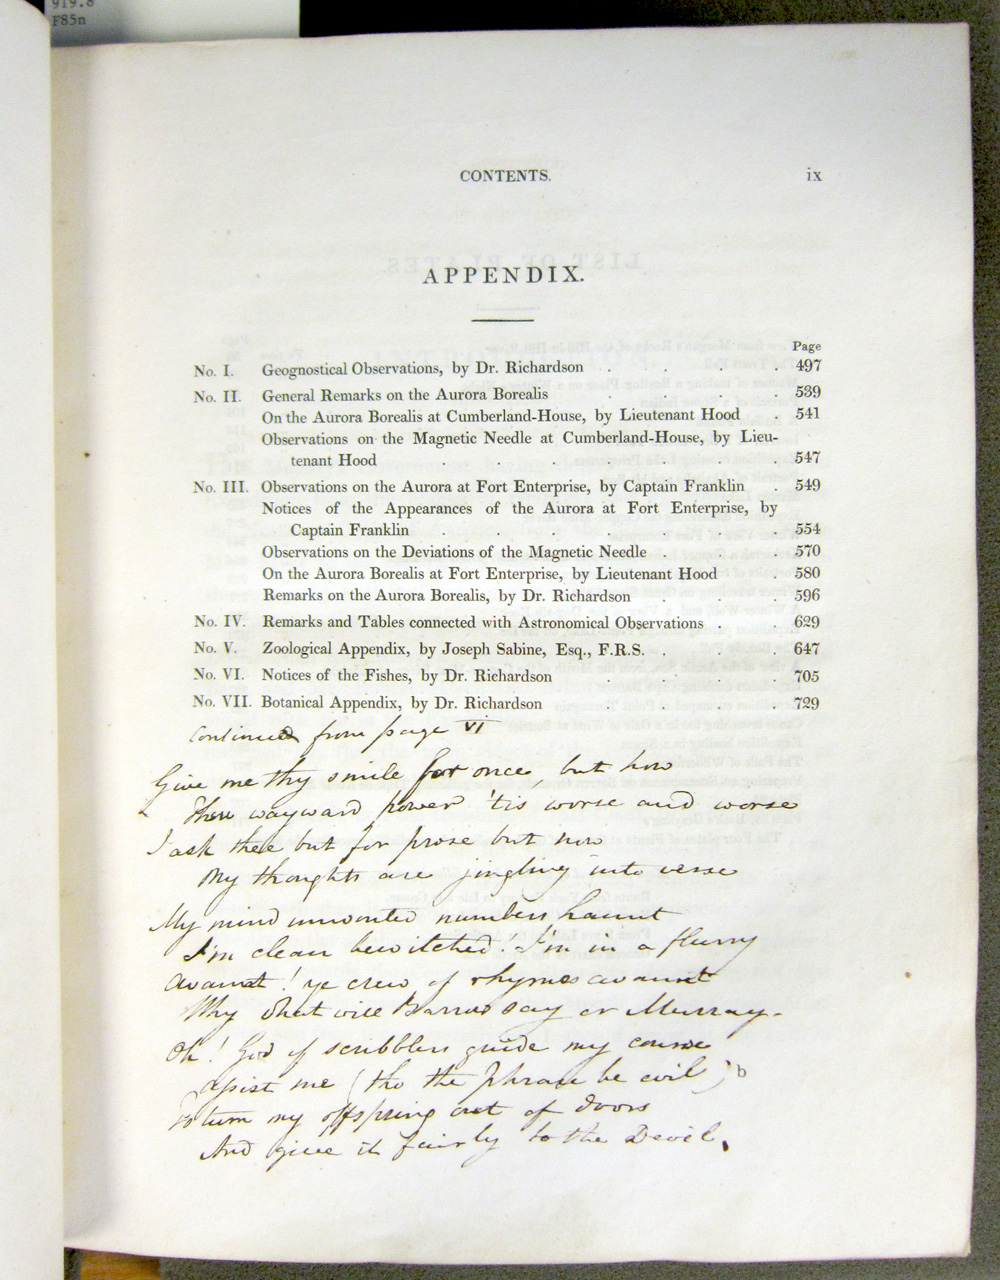 919.8
F85n
CONTENTS. ix
APPENDIX.
Page
No. I. Geognostical Observations, by Dr. Richardson . . . . 497
No. II. General Remarks on the Aurora Borealis . . . . 539
On the Aurora Borealis at Cumberland-House, by Lieutenant Hood . 541
Observations on the Magnetic Needle at Cumberland-House, by Lieu-
tenant Hood . . . . . . . 547
No. III. Observations on the Aurora at Fort Enterprise, by Captain Franklin . 549
Notices of the Appearances of the Aurora at Fort Enterprise, by
Captain Franklin . . . . . . . 554
Observations on the Deviations of the Magnetic Needle . . . 570
On the Aurora Borealis at Fort Enterprise, by Lieutenant Hood . 580
Remarks on the Aurora Borealis, by Dr. Richardson . . 596
No. IV. Remarks and Tables connected with Astronomical Observations . . 629
No. V. Zoological Appendix, by Joseph Sabine, Esq., F.R.S. . . . 647
No. VI. Notices of the Fishes, by Dr. Richardson . . . 705
No. VII. Botanical Appendix, by Dr. Richardson . . . 729
Continued from page VI
Give me thy smile for once, but how
Thou wayward power 'tis worse and worse
I ask thee but for prose but now
My thoughts are jingling into verse
My mind unwonted numbers haunt
I'm clean bewitched! I'm in a flurry
avaunt! ye crew of rhymes avaunt
Why what will Barrow say or Murray.
Oh! God of scribblers guide my course
assist me (tho the phrase be evil)
To turn my offspring out of doors
And give it fairly to the Devil.
b